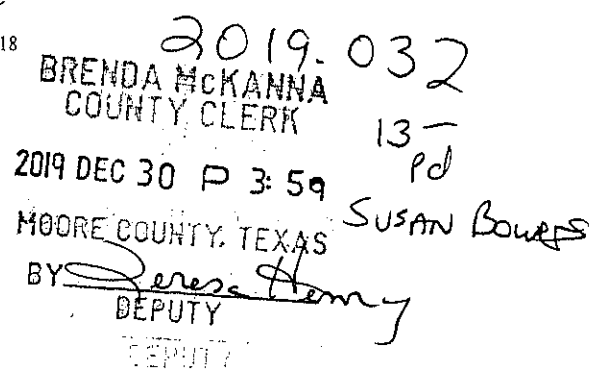 18
2019.032
BRENDA McKANNA
COUNTY CLERK
13-
Pd
2019 DEC 30 P 3:59
SUSAN Bowers
MOORE COUNTY, TEXAS
BY Teresa Henry
DEPUTY
DEPUTY